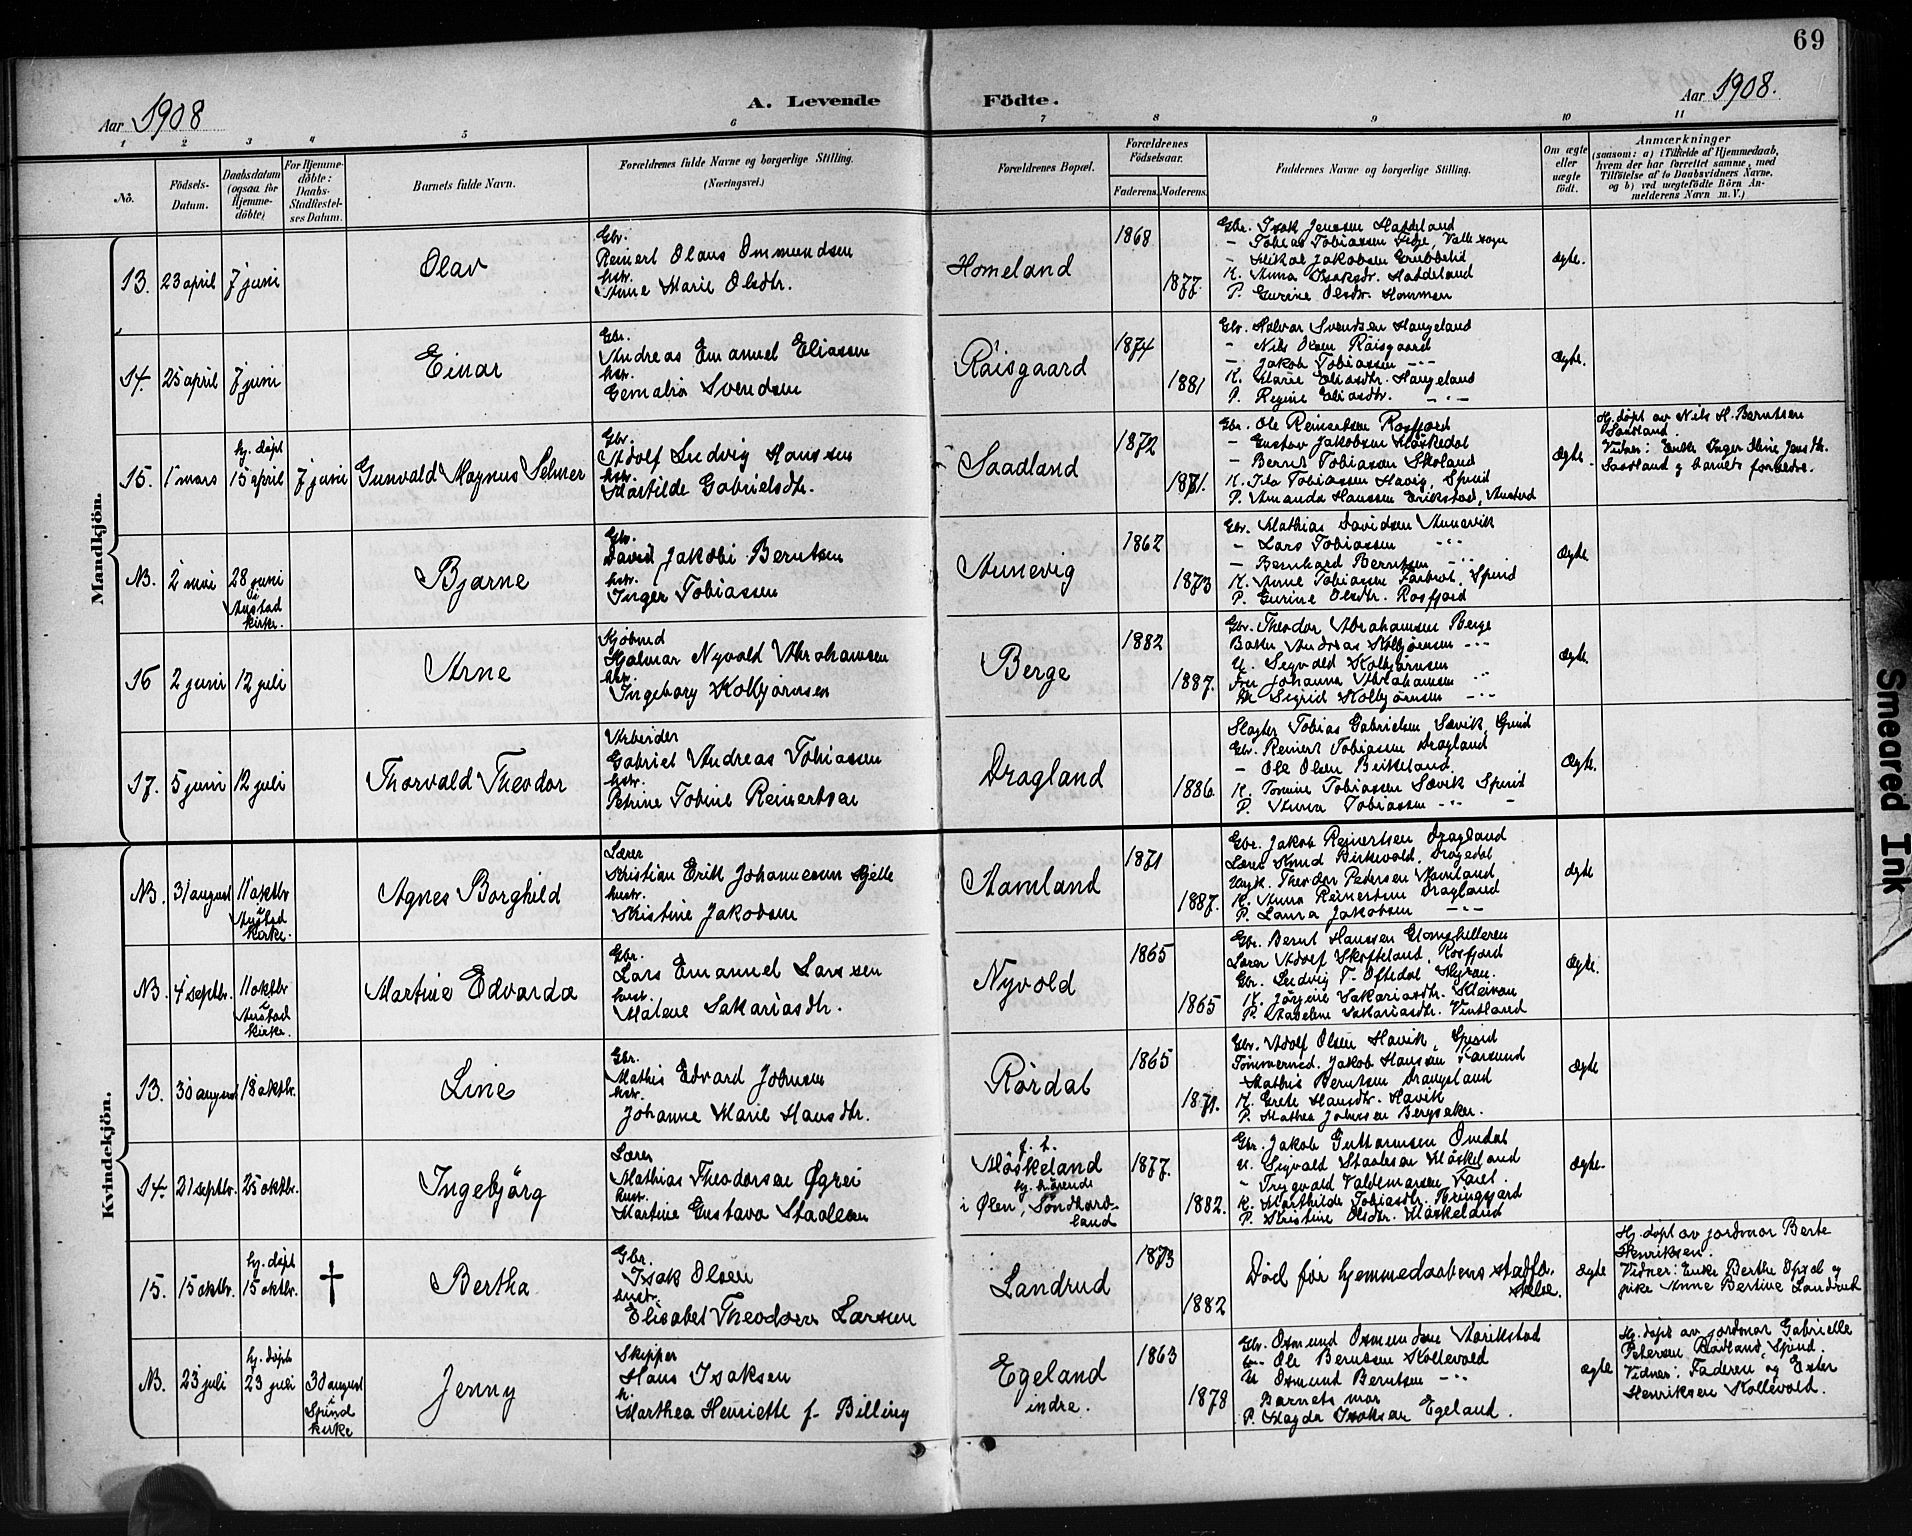 69
Aar 1908
A. Levende Födte.
Aar 1908.
1 2 3 4 5 6 7 8 9 10 11
No.
Födsels-Datum.
Daabsdatum (ogsaa for Hjemmedöbte)
For Hjemmedöbte: Daabs-Stadfæstelses Datum.
Barnets fulde Navn.
Forældrenes fulde Navne og borgerlige Stilling. (Næringsvei.)
Forældrenes Bopæl.
Forældrenes Födselsaar.
Faderens. Moderens.
Faddernes Navne og borgerlige Stilling.
Om ægte eller uægte födt.
Anmærkninger
(saasom: a) i Tilfælde af Hjemmedaab, hvem der har forrettet samme, med Tilföielse af to Daabsvidners Navne, og b) ved uægtefödte Börn Anmelderens Navn m. V.)
Mandkjön.
13. 23 april 7 juni
Olav
Gbr.
Reinert Olaus Ommundsen
hstr.
Anne Marie Olsdtr.
Homeland
1868
1877.
Gbr. Isak Jenssen Haddeland
- Tobias Tobiassen Eige, Valle sogn
- Mikal Jakobsen Grubbelid
K. Anna Isaksdtr. Haddeland
P. Gurine Olsdtr. Hommen
ægte.
14. 25 april 7 juni
Einar
Gbr.
Andreas Emanuel Eliassen
hstr.
Gemalia Svendsen
Råisgaard
1874
1881
Gbr. Halvar Svendsen Haugeland
- Nils Olsen Råisgaard
- Jakob Tobiassen - " -
K. Marie Eliasdtr. Haugeland
P. Regine Eliasdtr. - " -
ægte.
15. 1 mars
hj. døpt
15 april
7 juni
Gunvald Magnus Selmer
Gbr.
Adolf Ludvig Hanssen
hstr.
Martilde Gabrielsdtr.
Saadland
1872
1871.
Gbr. Ole Reinertsen Rosfjord
- Gustav Jakobsen Møskedal
- Bernt Tobiassen Skoland
K. Ida Tobiassen Havig, Spind
P. Amanda Hanssen Erikstad, Austad
ægte.
Hj. døpt av Nils H. Berntsen
Saadland
Vidner: Enke Inger Oline Jensdtr.
Saadland og barnets forældre.
NB. 2 mai
28 juni
i
Austad
kirke.
Bjarne
Gbr.
David Jakobi Berntsen
hstr.
Inger Tobiassen
Aunevig
1862
1873
Gbr. Mathias Davidsen Aunevik
- Lars Tobiassen - " -
- Bernhard Berntsen - " -
K. Anne Tobiassen Farbrot, Spind
P. Gurine Olsdtr. Rosfjord
ægte
16 2 juni 12 juli
Arne
Kjøbmd
Hjalmar Nyvold Abrahamsen
hstr.
Ingeborg Kolbjørnsen
Berge
1882
1887.
Gbr. Theodor Abrahamsen Berge
Baker Andreas Kolbjørnsen - " -
U. Sigvald Kolbjørnsen
Fru Johanna Abrahamsen - " -
Sigrid Kolbjørnsen - " -
ægte.
17. 5 juni 12 juli
Thorvald Theodor
Arbeider
Gabriel Andreas Tobiassen
hstr.
Petrine Tobine Reinertsen
Dragland
1886.
Slagter Tobias Gabrielsen Sævik, Spind
Gbr. Reinert Tobiassen Dragland
- Ole Olsen Birkeland
K. Tomine Tobiassen Sævik Spind
P. Anna Tobiassen - " - -
Ægte.
Kvindekjön.
NB. 31 august
11 oktbr
i
Austad
kirke.
Agnes Borghild
Lærer
Kristian Erik Johannessen Gjelle
hustr.
Kristine Jakobsen
Aamland
1871
1887.
Gbr. Jakob Reinertsen Dragland
Lærer Knud Birkevold, Dragedal
Ungk. Theodor Pedersen Aamland
K. Anna Reinertsen Dragland
P. Laura Jakobsen - " -
ægte
NB. 4 septbr.
11 oktbr
i
Austad
kirke.
Martine Edvarda
Gbr.
Lars Emanuel Larssen
hustr.
Malene Sakariasdtr.
Nyvold
1865
1865
Gbr. Bernt Hanssen Glomshelleren
Lærer Adolf Skofteland, Rosfjord
Gbr. Ludvig T. Oftedal
K. Jørgine Sakariasdtr. Kleivan
P. Aadeline Sakariasdtr. Vintland
Ægte.
13. 30 august 18 oktbr.
Line
Gbr.
Mathis Edvard Johnsen
hstr.
Johanne Marie Hansdtr.
Rördal
1865
1871.
Gbr. Adolf Olsen Havik, Spind
Tømmermd. Jakob Hanssen Farsund
Mathis Berntsen Drangeland
K. Grete Hansdtr. Havik
P. Mathea Johnssen Bergsaker.
ægte
14. 21 septbr. 25 oktbr.
Ingebjörg
Lærer
Mathias Theodorsen Øgrei
hust.
Martine Gustava Staalesen
f. t.
Møskeland
hj. hørende
i Ølen, Søndhordland
1877.
1882.
Gbr. Jakob Guttormsen Omdal
U. Sigvald Staalesen Møskeland
- Trygvald Valdemarsen Faret
K. Marthilde Tobiasdtr. Ringgjerd
P. Kristine Olsdtr. Møskeland
ægte.
15. 15 oktbr.
hj. døpt
15 oktbr.
†
Bertha
Gbr.
Isak Olsen
hustr.
Elisabet Theodora Larsen
Landrud
1873
1882
Død før hjemmedaabens stadfæstelse.
ægte
Hj. døpt av jordmor Berte
Henriksen.
Vidner: Enke Berthe Opsal og
pike Anne Bertine Landrud
NB. 23 juli
hj. døpt
23 juli
30 august
i
Spind
kirke
Jenny
Skipper
Hans Isaksen
h.
Marthea Henriette f. Billing
Egeland
indre.
1863
1878
Gbr. Osmund Osmundsen Aarikstad
- Ole Berntsen Kollevold
U Osmund Berntsen - " -
Barnets mor
P. Magda Isaksen Egeland.
ægte
Hj. døpt av jordmor Gabrielle
Petersen Rødland, Spind.
Vidner: Faderen og Ester
Henriksen Kollevold.
Smeared Ink